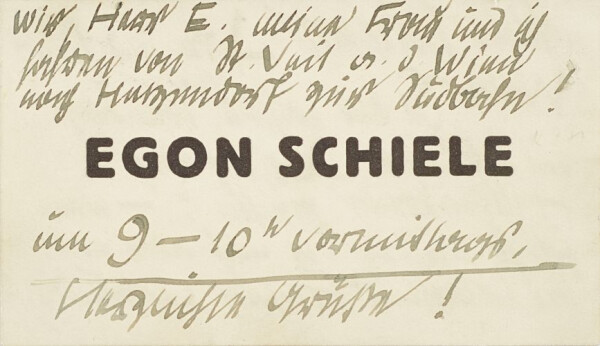 wir, Herr E. meine Frau und ich
fahren von St. Veit a. d Wien
nach Hetzendorf zur Südbahn!
EGON SCHIELE
um 9–10ʰ vormittags,
Herzlichste Grüße!